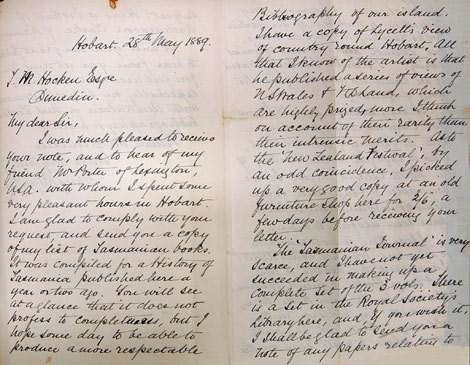 Hobart. 28th May 1889.
T M Hocken Esqre
Dunedin.
My dear Sir,
I was much pleased to receive
your note, and to hear of my
friend Mr Porter of Lexington,
U.S.A. with whom I spent some
very pleasant hours in Hobart.
I am glad to comply with your
request, and send you a copy
of my list of Tasmanian books.
It was compiled for a History of
Tasmania published here a
year or two ago. You will see
at a glance that it does not
profess to completeness, but I
hope some day to be able to
produce a more respectable
Bibliography of our island.
I have a copy of Lycett's view
of country round Hobart. All
that I know of the artist is that
he published a series of views of
N S Wales & V D Land, which
are highly prized, more I think
on account of their rarity than
their intrinsic merits. As to
the 'New Zealand Festival', by
an odd coincidence, I picked
up a very good copy at an old
furniture shop here for 2/6, a
few days before receiving your
letter.
The 'Tasmanian Journal' is very
scarce, and I have not yet
succeeded in making up a
complete set of the 3 vols. There
is a set in the Royal Society's
Library here, and if you wish it,
I shall be glad to send you a
note of any papers relating to